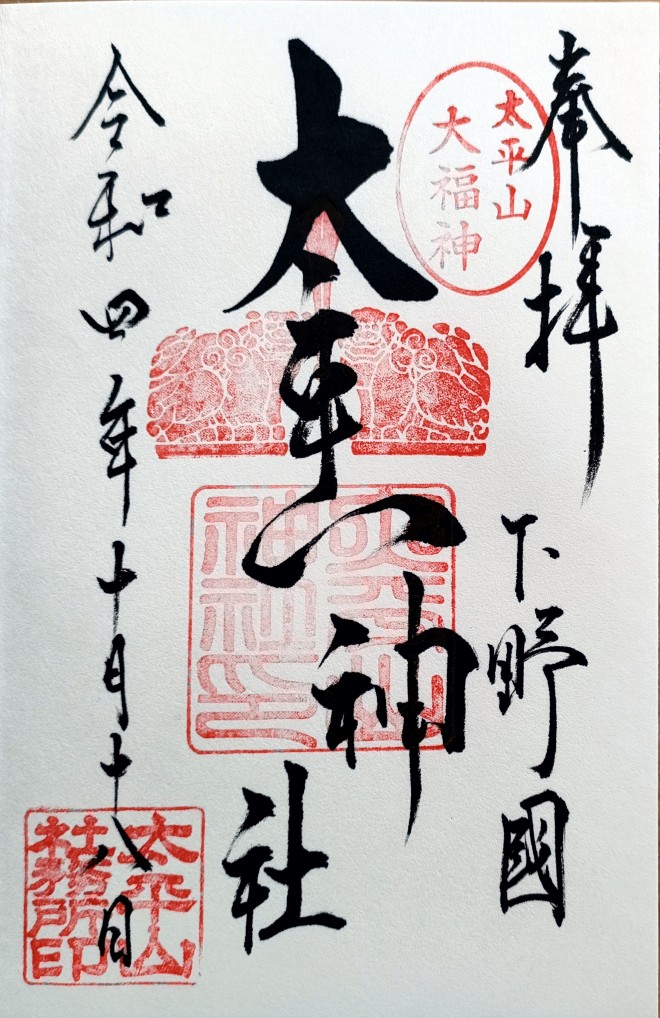 奉拝
下野國
太平山
大福神
太平山神社
太平山
神社印
令和四年十月十八日
太平山
社務所印